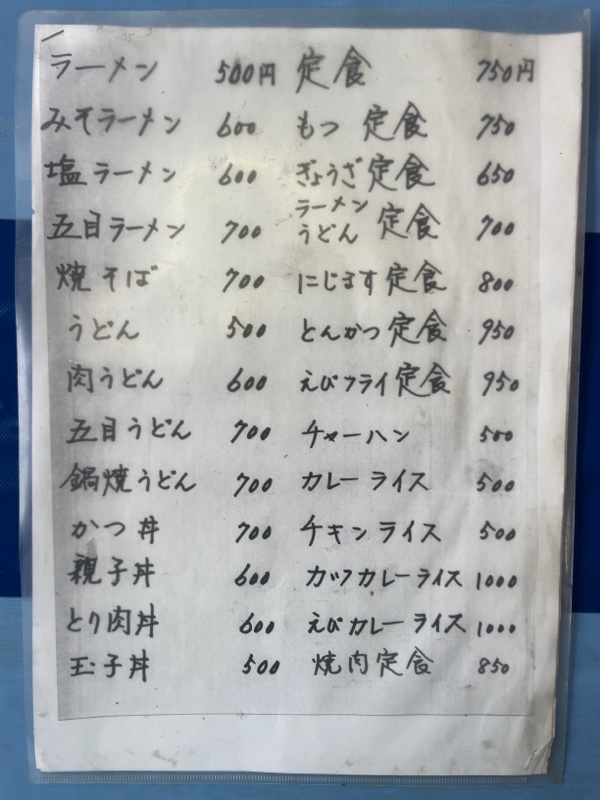 ラーメン 500円
みそラーメン 600
塩ラーメン 600
五目ラーメン 700
焼そば 700
うどん 500
肉うどん 600
五目うどん 700
鍋焼うどん 700
かつ丼 700
親子丼 600
とり肉丼 600
玉子丼 500
定食 750円
もつ定食 750
ぎょうざ定食 650
ラーメン
うどん 定食 700
にじます定食 800
とんかつ定食 950
えびフライ定食 950
チャーハン 500
カレーライス 500
チキンライス 500
カツカレーライス 1000
えびカレーライス 1000
焼肉定食 850